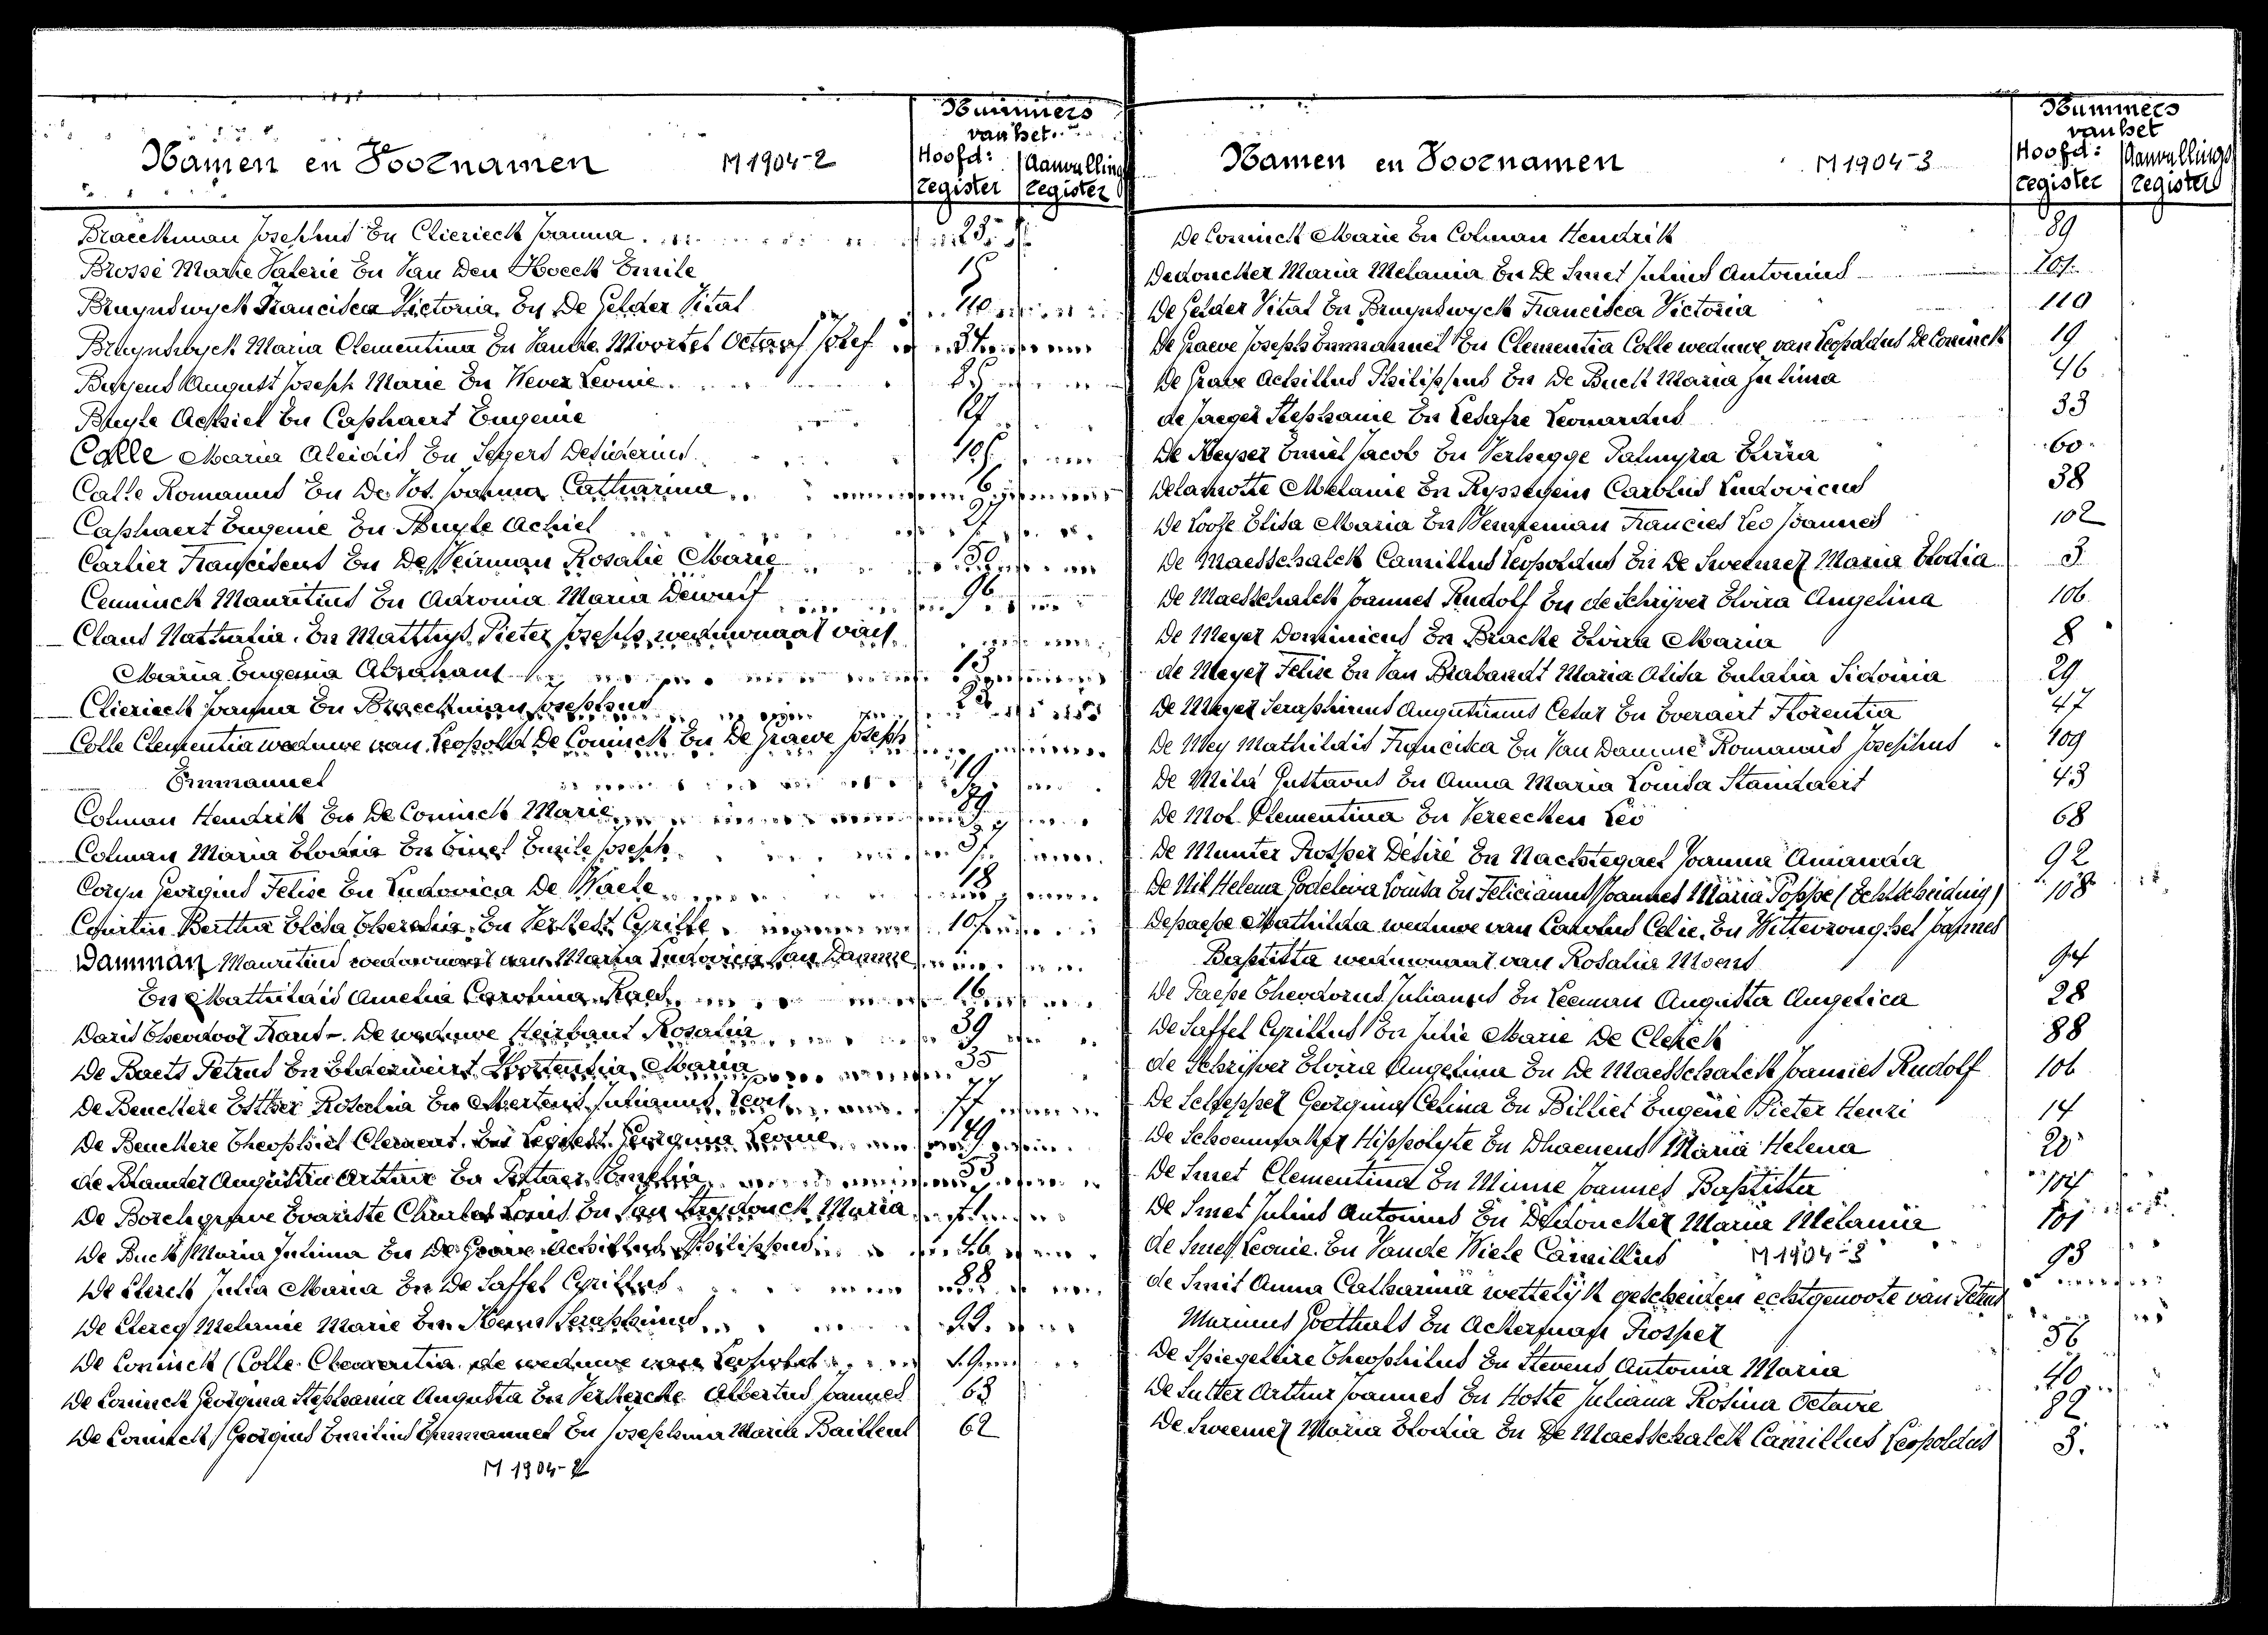 Nummers
van het
Namen en Voornamen M 1904-2 Hoofd: Aanvullings
register register
Braeckman Josephus En Clierieck Joanna 23
Brosse Marie Valerie En Van Den Hoeck Emile 15
Bruyndwyck Francisca Victoria En De Gelder Vital 110
Bruyndwyck Maria Clementina En Vande Moortel Octaaf Jozef 34
August Joseph Marie En Wever Leonie 25
Buyle Achiel En Caphaert Eugenie 27
Calle Maria Aleidis En Segers Desiderius
Calle Romanus En De Vos Joanna Catharina 6
Caphaert Eugenie En Buyle Achiel 27
Carlier Franciscus En De Veirman Rosalie Marie 50
Cenninck Mauritius En Adronia Maria Dewulf 96
Claus Nathalia En Matthys Pieter Joseph weduwnaar van
Maria Eugenia Abrahams 13
Clierieck Joanna En Braeckman Josephus 23
Colle Clementia weduwe van Leopold De Coninck En De Graeve Joseph
Emmanuel 19
Colman Hendrik En De Coninck Marie 89
Colman Maria Elodia En Emile Joseph 37
Coryn Georgius Felise En Ludovica De Waele 18
Courtin Bertha Elisa En Verhest Cyrille
Damman Mauritius weduwnaar van Maria Ludovica Van Damme
En Mathildis Amelia Carolina 16
Daris Theodoor Frans - De weduwe Heirbaut Rosalia 39
De Baets Petrus En Elderweirt Hortentia Maria 35
De Beuckere Esther Rosalia En Mertens Julianus Leon 77
De Beuckere Theophiel Clement En Georgina Leonie 49
de Blander Augustin Arthur En Emelia 53
De Borchgrave Evariste Charles Louis En Van Strydonck Maria
De Buck Maria Julima En De Grave Achillus Philippus 46
De Clerck Julia Maria En De Saffel Cyrillus 88
De Clercq Melanie Marie En Seraphinus
De Coninck (Colle Clementia de weduwe van Leopold 19
De Coninck Georgina Stephania Augusta En Verkercke Albertus Joannes 63
De Coninck Georgius Emilius Emmanuel En Josephina Maria Bailleul 62
M 1904-2
Nummers
van het
Namen en Voornamen M 1904-3 Hoofd: Aanvullings
register register
De Coninck Marie En Colman Hendrik 89
Dedoncker Maria Melania En De Smet Julius Antonius 101
De Gelder Vital En Bruyndwyck Francisca Victoria 110
De Graeve Joseph Emmanuel En Clementia Colle weduwe van Leopoldus De Coninck 19
De Grave Achillus Philippus En De Buck Maria Julima 46
de Jaeger Stephanie En Lesafre Leonardus 33
De Keyser Emiel Jacob En Verhegge Palmyra Elvira 60
Delamotte Melanie En Ryssegem Carolus Ludovicus 38
De Loose Elisa Maria En Francies Leo Joannes 102
De Maesschalck Camillus Leopoldus En De Sweemer Maria Elodia 3
De Maesschalck Joannes Rudolf En de Schrijver Elvira Angelina 106
De Meyer Dominicus En Bracke Elvira Maria 8
de Meyer Felise En Van Brabandt Maria Alisa Eulalia Sidonia 29
De Meyer Seraphinus Augustinus Cesar En Everaert Florentia 47
De Mey Mathildis Francisca En Van Damme Romanus Josephus 109
De Milis Gustavus En Anna Maria Louisa Standaert 43
De Mol Clementina En Vereecken Leo 68
De Munter Prosper Desire En Nachtegael Joanna Amanda 92
De Nil Helena Godelieva Louisa En Felicianus Joannes Maria Poppe (Echtscheiding) 108
Depaepe Mathilda weduwe van Carolus Celie En Wittevronghel Joannes
Baptista weduwnaar van Rosalia Moens
De Paepe Theodorus Julianus En Leeman Augusta Angelica 28
De Saffel Cyrillus En Julie Marie De Clerck 88
de Schrijver Elvira Angelina En De Maesschalck Joannes Rudolf 106
De Schepper Georgina Celina En Billiet Eugene Pieter Henri 14
De Schoenmaker Hippolyte En Dhaenens Maria Helena 20
De Smet Clementina En Minne Joannes Baptista 104
De Smet Julius Antonius En Dedoncker Maria Melania 101
de Smet Leonie En Vande Wiele Camillus M 1904-3 93
de Smit Anna Catharina wettelijk gescheiden echtgenoote van Petrus
Marinus Goethals En Ackerman Prosper 56
De Spiegelaire Theophilus En Stevens Antonia Maria 40
De Sutter Arthur Joannes En Hoste Juliana Rosina Octavie 82
De Sweemer Maria Elodia En De Maesschalck Camillus Leopoldus 3.